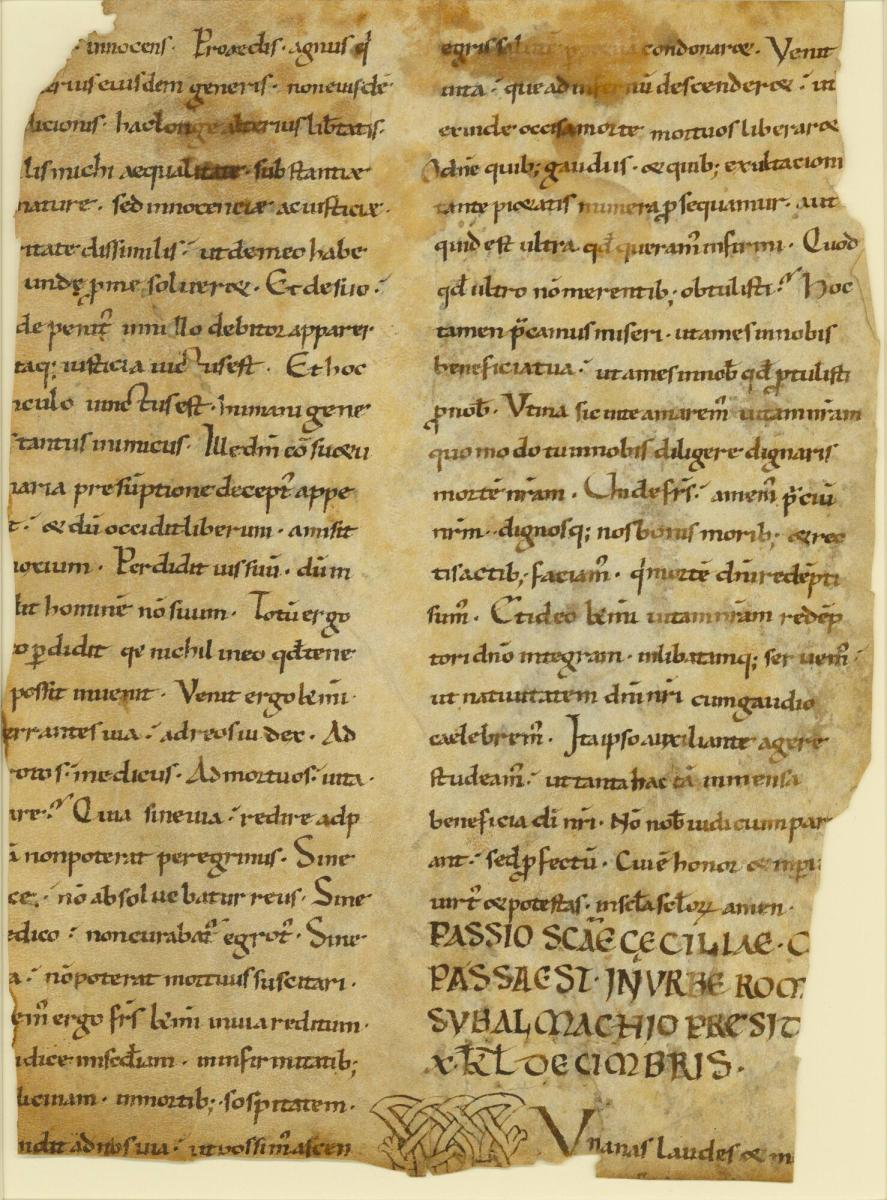 innocens. Pro reis. agnus q̄
eiusdem generis. non eiusdē
dicionis. hac longe alterius lib̄tatis.
lis michi aequalitate. substantiae
nature. sed innocenciae ac iusticiae.
ritate dissimilis. ut de meo habe
undę ꝑ me solueret. Et de suo.
de penit᷒ in illo debitor apparer
taq; iusticia uinctus est. Et hoc
iculo uinctus est. humani gene
tantus inimicus. Ille dm̄ cōsuetu
naria presūptione decept᷒ appe
t. & dū occidit liberum. amisit
noxium. Perdidit uissuū. dum
lit hominē nō suum. Totū ergo
o ꝑdidit qe nichil in eo qđ tene
possit inuenit. Venit ergo k̄mi.
errantes uia. ad reos iudex. Ad
rotos. medicus. Ad mortuos. uita.
are. Quia sine uia. redire ad p
ā non poterat peregrinus. Sine
ce. nō absoluebatur reus. Sine
edico. non curabat᷒ egrot᷒. Sine
a. nō poterat mortuus suscitari.
em᷒ ergo fr̄s k̄mi in uia reditum.
udice misc̄diam. in infirmitatib;
licinam. in mortib;. sospitatem.
ndit ad nos uia. ut possim᷒ ascen
egris salutē condonaret. Venit
uita. que ad infernū descenderet. ut
exinde occisa morte mortuos liberaret
O dn̄e quib; gaudiis. & quib; exultacioni
tante pietatis munera ꝓsequamur. aut
quid est ultra qđ queram᷒ infirmi. Quod
qđ ultro nō merentib; obtulisti. Hoc
tamen p̄camus miseri. ut ames in nobis
beneficia tua. ut ames in nob̄ qđ ꝓtulisti
ꝓ nob̄. Vtinā sic in te amarem᷒ uitam nr̄am
quomodo tu in nobis diligere dignaris
mortē nr̄am. Unde fr̄s. amem᷒ p̄ciū
nr̄m. dignosq; nos bonis morib; & rec
tis actib; faciam᷒. q̄ mortē dn̄i redēpti
sum᷒. Et ideo k̄mi uitam nr̄am redēp
tori dn̄o integram. inlibatamq; seruem᷒.
ut natiuitatem dn̄i nr̄i cum gaudio
caelebrem᷒. Ita ipso auxiliante agere
studeam᷒. ut tanta hac tā inmensa
beneficia dī nr̄i. Nō nob̄ iudicium par
ant. sed ꝓfectū. Cui ē honor &
uirt᷒ & potestas. in sc̄la sc̄loꝝ amen.
PASSIO SCĀE CĘCILIAE. C
PASSA EST. IN VRBE ROM
SVB ALMACHIO PRESID
X. KL̄ DECIMBRIS.
Vmanas laudes & m